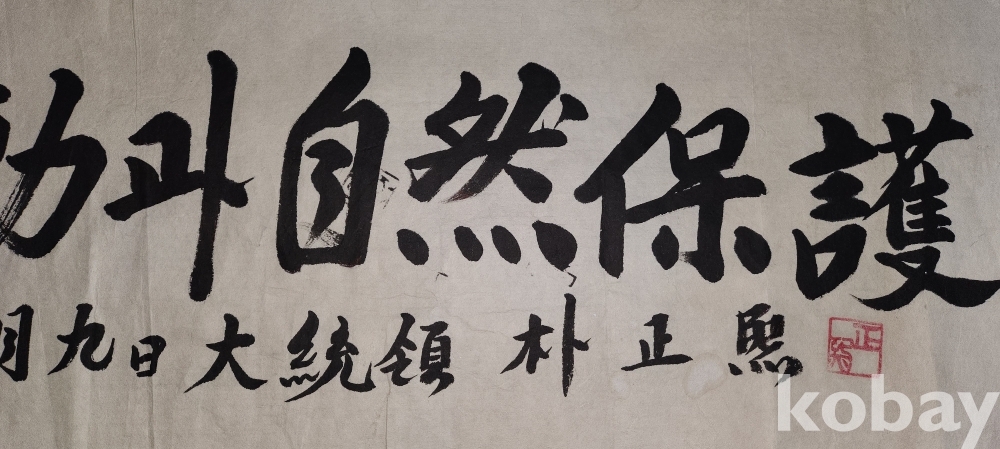 動과自然保護
月九日 大統領 朴正熙
正熙
kobay